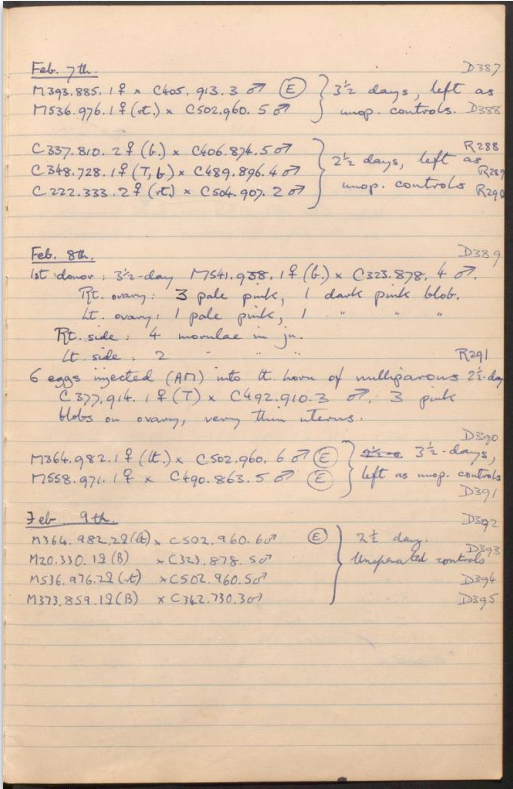 Feb. 7th. D387
M393.885.1♀ × C405.913.3 ♂ (E) } 3½ days, left as
M536.976.1♀ (rt.) × C502.960.5♂ } unop. controls. D388
C337.810.2♀ (b.) × C406.874.5♂ R288
C348.728.1♀ (T, b.) × C489.896.4♂ } 2½ days, left as R289
C222.333.2♀ (rt.) × C504.907.2♂ unop. controls R290
Feb. 8th. D389
1st donor: 3½-day M541.938.1♀ (b.) × C323.878.4 ♂.
Rt. ovary: 3 pale pink, 1 dark pink blob.
Lt. ovary: 1 pale pink, 1 " " "
Rt. side: 4 morulae in jn.
Lt side: 2 " " " R291
6 eggs injected (AM) into lt horn of nulliparous 2½-day
C377.914.1♀ (T) × C492.910.3 ♂. 3 pink
blobs on ovary, very thin uterus.
D390
M364.982.1♀ (lt.) × C502.960.6♂ (E) } 3½-days,
M558.971.1♀ × C490.863.5♂ (E) } left as unop. controls
D391
Feb 9th. D392
M364.982.2♀ (lt) × C502.960.6♂ (E) } 2½ day.
M20.330.1♀ (B) × C323.878.5♂ Unoperated controls D393
M536.976.2♀ × C502.960.5♂ D394
M373.859.1♀ (B) × C342.730.3♂ D395